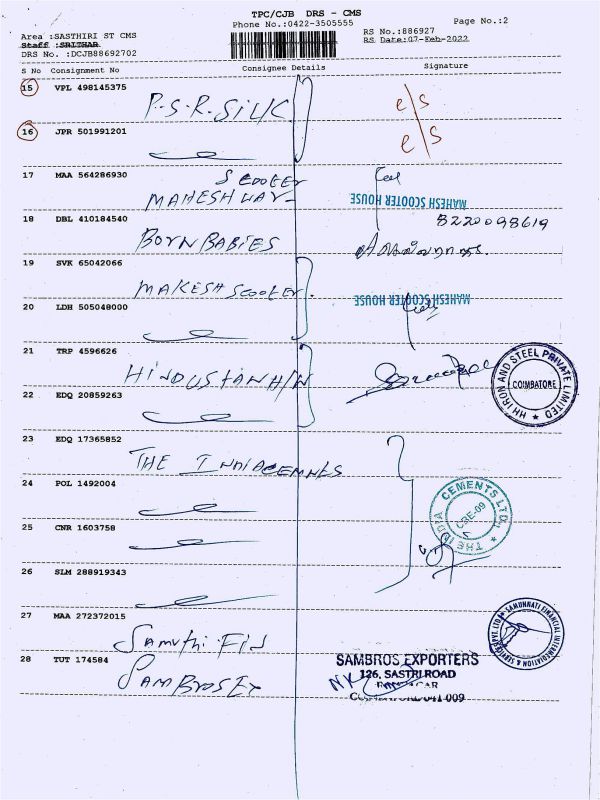 TPC/CJB DRS - CMS
Phone No.:0422-3505555
Page No.:2
Area :SASTHIRI ST CMS
RS No.:886927
Staff :SRITHAR
RS Date:07-Feb-2022
DRS No. :DCJB88692702
S No Consignment No Consignee Details Signature
15 VPL 498145375
P.S.R.SILK
e/s
16 JPR 501991201
e/s
17 MAA 564286930
SCOOTER
MAHESHWAR
MAHESH SCOOTER HOUSE
18 DBL 410184540
8220098619
BORN BABIES
19 SVK 65042066
MAKESH SCOOTER.
MAHESH SCOOTER HOUSE
20 LDH 505048000
21 TRP 4596626
HINDUSTAN H/N
HH IRON AND STEEL PRIVATE LIMITED
COIMBATORE
22 EDQ 20859263
23 EDQ 17365852
THE INDIACEMNES
24 POL 1492004
THE INDIA CEMENTS LTD.,
CBE-09
25 CNR 1603758
26 SLM 288919343
27 MAA 272372015
Samuthi Fin
SAMUNNATI FINANCIAL INTERMEDIATION & SERVICES PVT. LTD
28 TUT 174584
SAMBROSEX
SAMBROS EXPORTERS
126, SASTRI ROAD
641 009